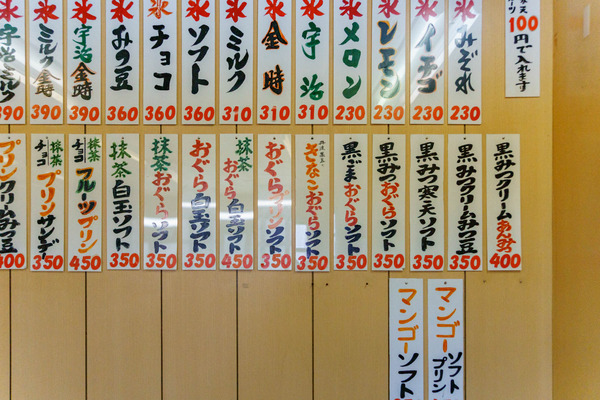 100円で入れます
氷 みぞれ 230
氷 イチゴ 230
氷 レモン 230
氷 メロン 230
氷 宇治 310
氷 金時 310
氷 ミルク 310
氷 ソフト 360
氷 チョコ 360
氷 みつ豆 360
氷 宇治金時 390
氷 ミルク金時 390
氷 宇治ミルク 390
黒みつクリームあんみつ 400
黒みつクリームみつ豆 350
黒みつ寒天ソフト 350
黒みつおぐらソフト 350
黒ごまおぐらソフト 350
きなこおぐらソフト 350
おぐらプリンソフト 350
抹茶おぐら白玉ソフト 450
おぐら白玉ソフト 350
抹茶おぐらソフト 350
抹茶白玉ソフト 350
チョコ 抹茶 フルーツプリン 450
チョコ 抹茶 プリンサンデー 350
プリンクリームみつ豆
マンゴーソフトプリン
マンゴーソフト